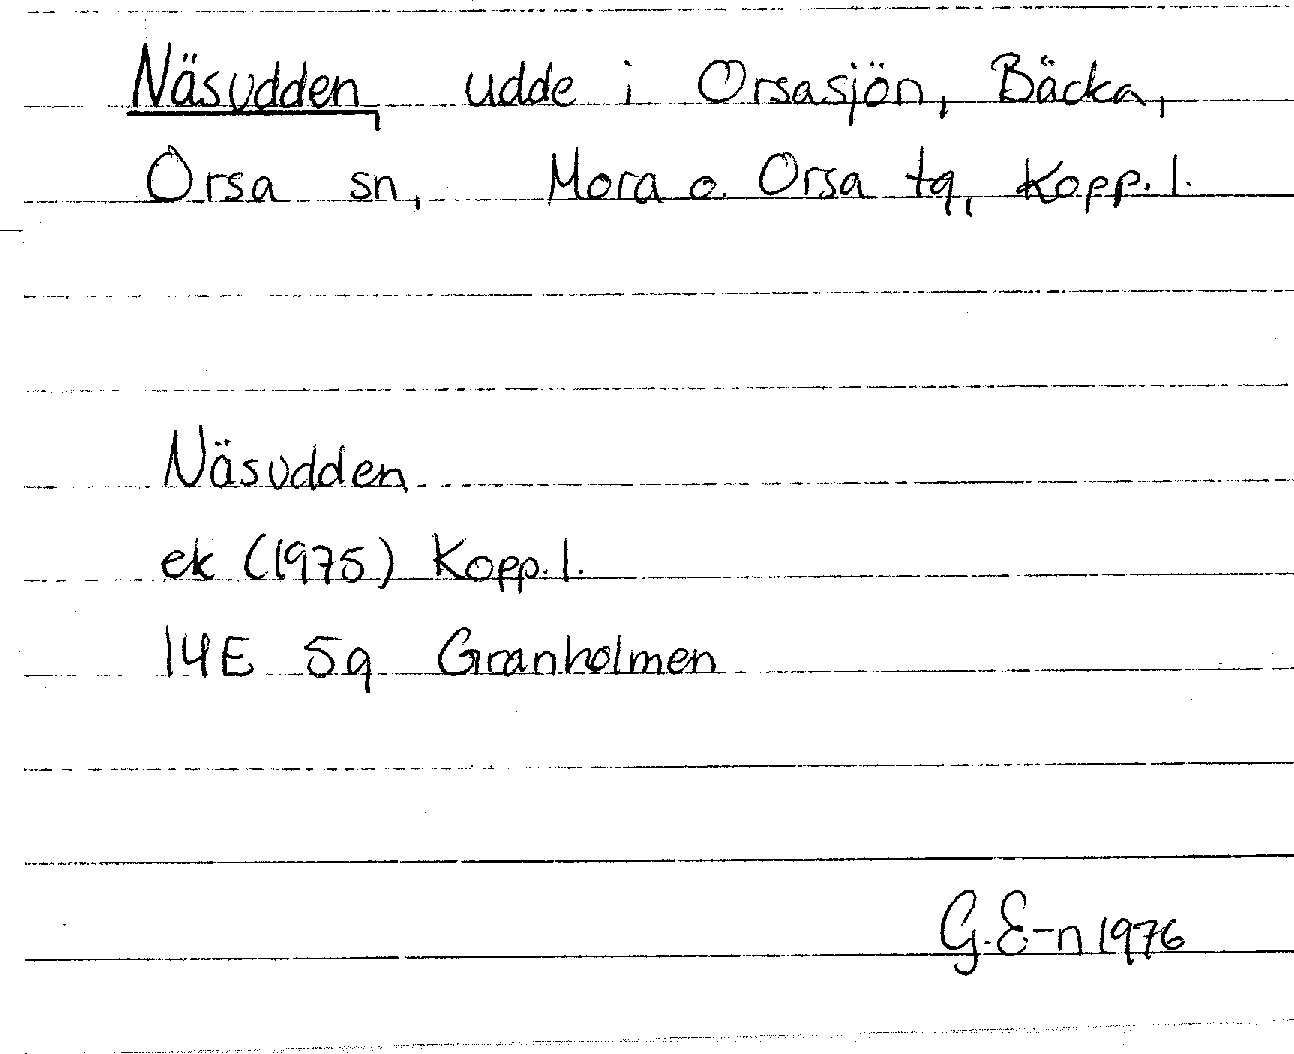 Näsudden, udde i Orsasjön, Bäcka,
Orsa sn, Mora o. Orsa tg, Kopp. l.
Näsudden
ek (1975) Kopp. l.
14E 5g Granholmen
G. E-n 1976